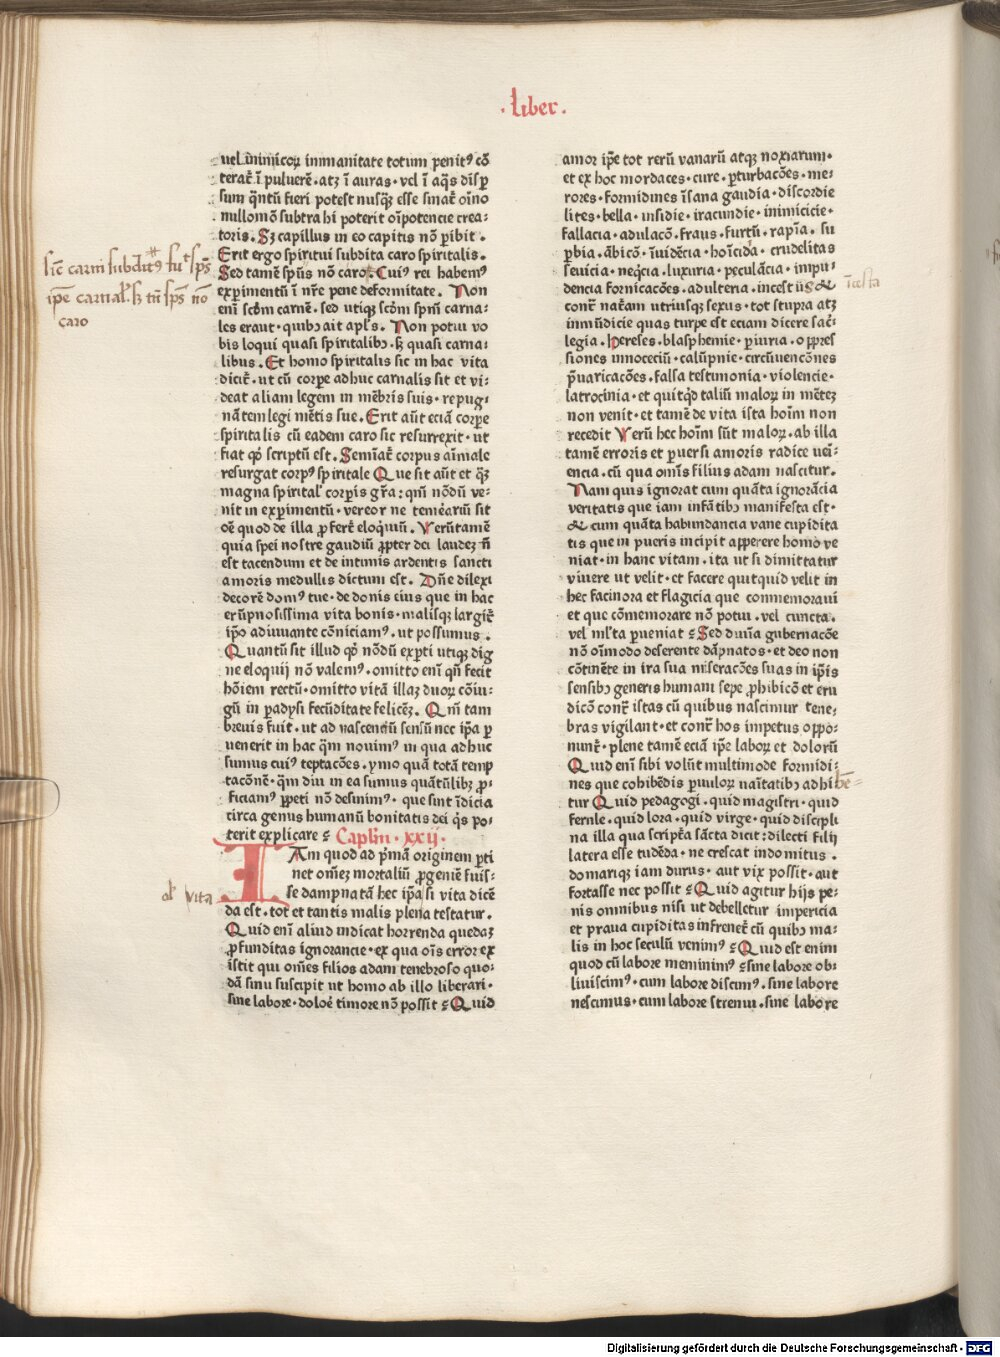 ·liber·
uel inimicoꝝ inmanitate totum penitꝰ cō
terat᷑ ī puluerē· atꝫ ī auras· vel ī aq̄s disꝑ
sum q̄ntū fieri potest nusq̄ꝫ esse sinat᷑ oīno
nullomō subtrahi poterit oīpotencie crea⸗
toris. Sꝫ capillus in eo capitis nō ꝑibit .
Erit ergo spiritui subdita caro spiritalis.
Sed tamē spūs nō caro. Cuiꝰ rei habemꝰ
experimentū ī nr̄e pene deformitate. Non
enī scdm carnē. sed utiqꝫ scdm spm̄ carna⸗
les eraut· quibꝫ ait apl's. Non potui vo
bis loqui quasi spiritalibꝫ· sꝫ quasi carna⸗
libus. Et homo spiritalis sic in hac vita
dicit᷑· ut cū corpe adhuc carnalis sit et vi⸗
deat aliam legem in mēbris suis· repug⸗
nātem legi mētis sue. Erit aūt eciā corpe
spiritalis cū eadem caro sic resurrexit· ut
fiat qď scriptū est. Semīat᷑ corpus aīmale
resurgat corpꝰ spiritale Que sit aūt et q̄ꝫ
magna spirital' corpis gr̄a: qm̄ nōdū ve⸗
nit in experimentū· vereor ne temēariū sit
oē quod de illa ꝓfert᷑ eloquiū. Verūtamē
quia spei nostre gaudiū ꝓpter dei laudeꝫ n̄
est tacendum et de intimis ardentis sancti
amoris medullis dictum est. Dn̄e dilexi
decorē domꝰ tue· de donis eius que in hac
erūpnosissima vita bonis· malisqꝫ largit᷑
ip̄o adiuuante cōniciamꝰ. ut possumus .
Quantū sit illud qď nōdū expti utiqꝫ dig
ne eloquij nō valemꝰ. omitto enī qn̄ fecit
hōiem rectū· omitto vitā illaꝫ duoꝝ cōiu⸗
gū in padysi fecūditate felicēꝫ. Qm̄ tam
breuis fuit. ut ad nascenciū sensū nec ip̄a ꝑ
uenerit in hac q̄m nouimꝰ in qua adhuc
sumus cuiꝰ teptacōes. ymo quā totā temp
tacōnē· q̄m diu in ea sumus quātūlibꝫ ꝓ⸗
ficiamꝰ ꝑpeti nō desinimꝰ· que sint īdicia
circa genus humanū bonitatis dei q̄s po⸗
terit explicare Caplm̄ · xxij ·
IAm quod ad pⁱmā originem ꝑti
net om̄eꝫ mortaliū ꝓgeniē fuis⸗
se dampnatā hec ip̄a si vita dicē
da est. tot et tantis malis plena testatur.
Quid enī aliud indicat horrenda quedaꝫ
ꝓfunditas ignorancie· ex qua oīs error ex
īstit qui om̄es filios adam tenebroso quo⸗
dā sinu suscipit ut homo ab illo liberari·
sine labore· doloē timore nō possit Quid
amor ip̄e tot rerū vanarū atqꝫ noxiarum·
et ex hoc mordaces· cure· ꝑturbacōes· me⸗
rores· formidines īsana gaudia· discordie
lites· bella· insidie· iracundie· inimicicie·
fallacia· adulacō· fraus· furtū· rapīa. su
ꝑbia· ābicō· īuidēcia· hoīcida· crudelitas
seuicia· neq̄cia· luxuria· peculācia· impu⸗
dencia fornicacōes· adulteria· incestus &
contr᷑ nat᷑am utriusqꝫ sexus· tot stupra atꝫ
inmūdicie quas turpe est eciam dicere sac᷑⸗
legia. hereses· blasphemie· ꝑiuria· oppres
siones innoceciū· calūpnie· circūuencōnes
p̄uaricacōes· falsa testimonia· violencie·
latrocinia· et quitqď taliū maloꝝ in mētez
non venit· et tamē de vita ista hoīm non
recedit Verū hec hoīm sūt maloꝝ· ab illa
tamē erroris et ꝑuersi amoris radice uei⸗
encia. cū qua om̄is filius adam nascitur.
Nam quis ignorat cum quāta ignorācia
veritatis que iam infātibꝫ manifesta est·
& cum quāta habundancia vane cupidita
tis que in pueris incipit apperere homo ve
niat· in hanc vitam· ita ut si dimittatur
viuere ut velit· et facere quitquid velit in
hec facinora et flagicia que conmemoraui
et que cōmemorare nō potui· vel cuncta.
vel ml'ta ꝑueniat Sed diuīa gubernacōe
nō oīmodo deserente dāpnatos· et deo non
cōtinēte in ira sua miseracōes suas in ip̄is
sensibꝫ generis humani sepe ꝓhibicō et eru
dicō contr᷑ istas cū quibus nascimur tene⸗
bras vigilant· et contr᷑ hos impetus oppo⸗
nunt᷑· plene tamē eciā ip̄e laboꝝ et dolorū
Quid enī sibi volūt multimode formidi⸗
nes que cohibēdis ꝑuuloꝝ naītatibꝫ adhibē⸗
tur Quid pedagogi· quid magistri· quid
ferule· quid lora· quid virge· quid discipli
na illa qua script᷑a sācta dicit: dilecti filij
latera esse tūdēda· ne crescat indomitus .
domarique iam durus· aut vix possit· aut
fortasse nec possit Quid agitur hijs pe⸗
nis omnibus nisi ut debelletur impericia
et praua cupiditas infrenet᷑ cū quibꝫ ma⸗
lis in hoc seculū venimꝰ Quid est enim
quod cū labore meminimꝰ sine labore ob⸗
liuiscimꝰ· cum labore discimꝰ. sine labore
nescimus· cum labore strenui. sine labore
sic carni subditꝰ fu't sps̄
ipe carnal' sꝫ tn̄ sps̄ nō
caro
al' vita
īcesta
Digitalisierung gefördert durch die Deutsche Forschungsgemeinschaft - DFG